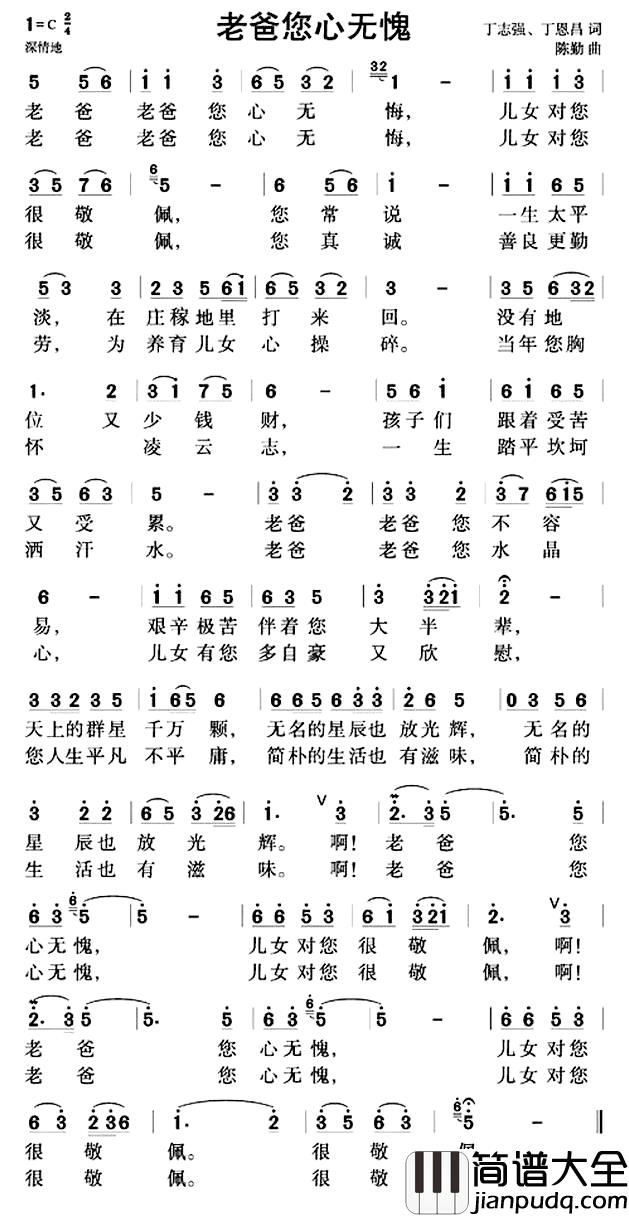 老爸您心无愧
1=C 2/4
深情地
丁志强、丁恩昌 词
陈勤 曲
5 56 | 1 1 3 | 65 32 | 32 1 - | 1 1 1 3 |
老 爸 老爸 您 心 无 悔, 儿女 对您
老 爸 老爸 您 心 无 悔, 儿女 对您
35 76 | 6 5 - | 6 56 | 1 - | 1 1 6 5 |
很 敬 佩, 您 常 说 一生 太平
很 敬 佩, 您 真 诚 善良 更勤
53 3 | 2 3 5 61 | 65 32 | 3 - | 35 632 |
淡, 在 庄稼地里 打 来 回。 没有 地
劳, 为 养育儿女 心 操 碎。 当年 您胸
1. 2 | 31 75 | 6 - | 56 1 | 61 65 |
位 又 少 钱 财, 孩子们 跟着 受苦
怀 凌 云 志, 一 生 踏平 坎坷
35 63 | 5 - | 3 3 2 | 3 3 2 | 37 615 |
又 受 累。 老爸 老爸 您 不 容
洒 汗 水。 老爸 老爸 您 水 晶
6 - | 1 1 6 5 | 6 3 5 | 3 321 | 2 - |
易, 艰辛极苦 伴着您 大 半 辈,
心, 儿女有您 多自豪 又 欣 慰,
332 35 | 165 6 | 6565 633 | 2 6 5 | 03 56 |
天上的群星 千万 颗, 无名的星辰也 放光辉, 无名的
您人生平凡 不平 庸, 简朴的生活也 有滋味, 简朴的
3 2 2 | 65 326 | 1. V 3 | 2. 3 5 | 5. 5 |
星 辰也 放 光 辉。 啊! 老 爸 您
生 活也 有 滋 味。 啊! 老 爸 您
6 3 6 5 | 5 - | 6 6 5 3 | 61 321 | 2. V 3 |
心无愧, 儿女对您 很 敬 佩, 啊!
心无愧, 儿女对您 很 敬 佩, 啊!
2. 3 5 | 5. 5 | 6 3 6 5 | 5 - | 6 6 5 3 |
老 爸 您 心无愧, 儿女对您
老 爸 您 心无愧, 儿女对您
6 3 | 2 3 6 | 1. 2 | 6 3 | 2 3 6 | 6 5 - ||
很 敬 佩。 很 敬
很 敬 佩。 很 敬
简谱大全
jianpudq.com